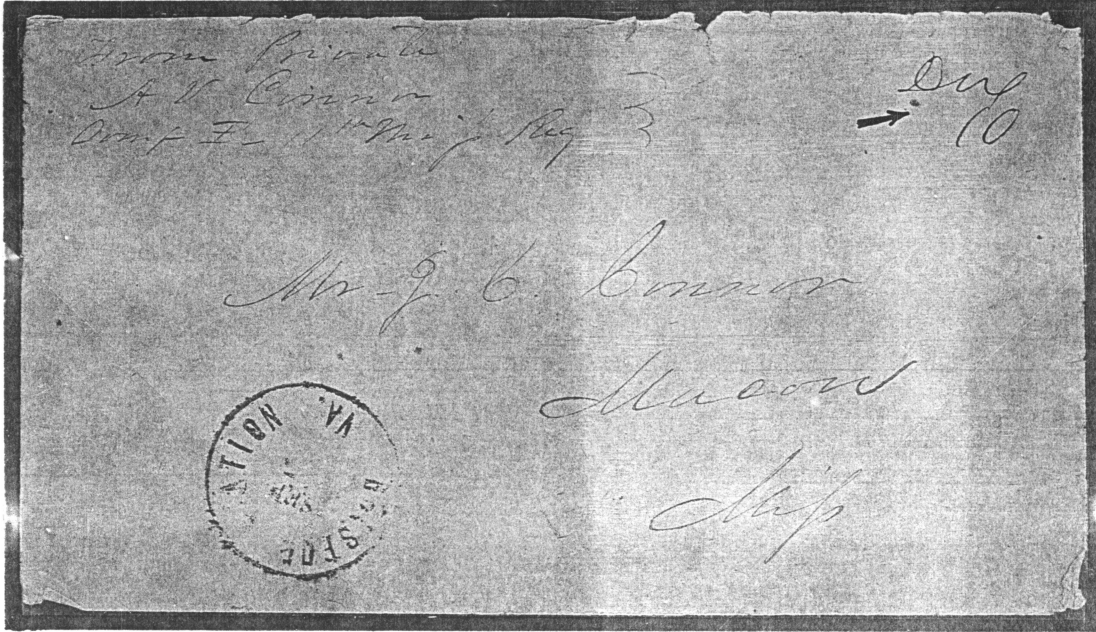 From Private
A V Connor
Comp F 11th Miss Reg
Due
10
Mr J. C. Connor
Macon
Miss
BRISTOE STATION VA.